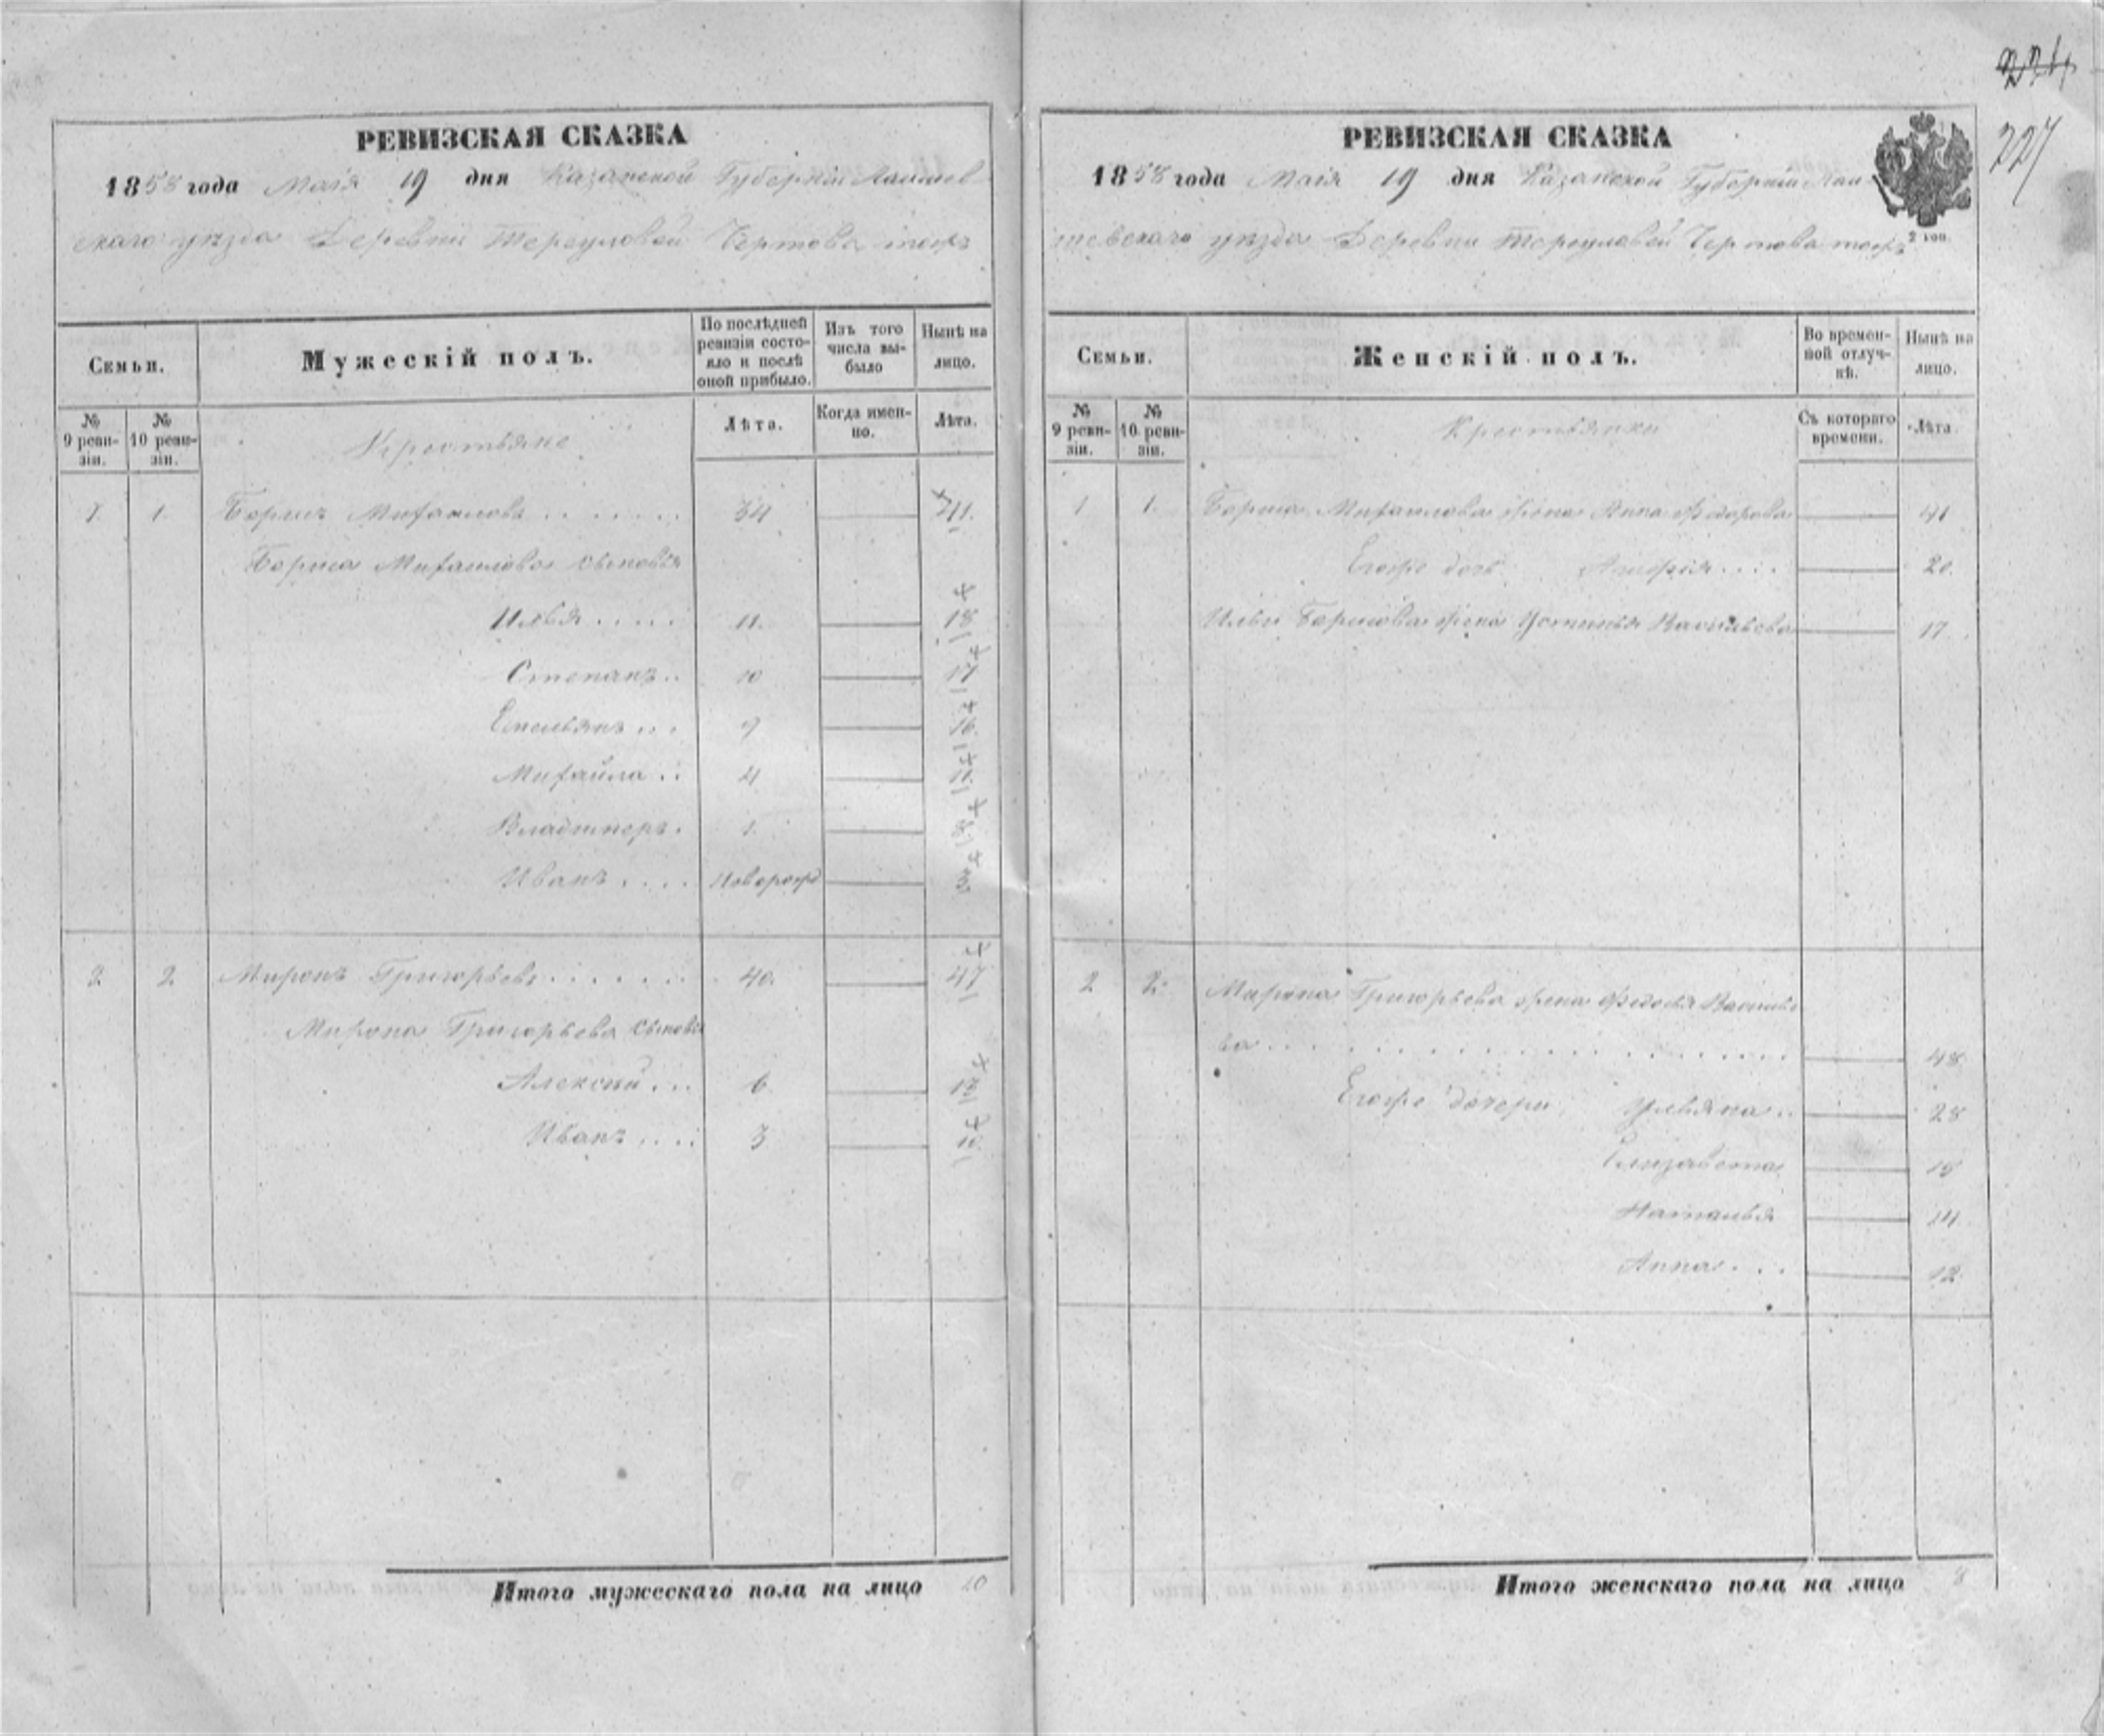 224
227
РЕВИЗСКАЯ СКАЗКА
1858 года Маія 19 дня Казанской Губерніи Лаишев
скаго уѣзда Деревни Чертова тожъ
Семьи.
Мужескій полъ.
По послѣдней ревизіи состояло и послѣ оной прибыло.
Изъ того числа выбыло
Нынѣ на лицо.
№ 9 ревизіи.
№ 10 ревизіи.
Крестьяне
Лѣта.
Когда именно.
Лѣта.
1. 1. Борисъ Михаиловъ . . . . . . 34 41.
Бориса Михаилова сыновья
Илья . . . . . 11. 18
Степанъ . . 10 17
Емельянъ . . . 9 16
Михайла . . 4
Владимеръ . 1.
Иванъ . . . . новорож
2 2 Миронъ Григорьевъ . . . . . . . 40. 47
Мирона Григорьева сыновья
Алексѣй . . . 6. 13
Иванъ . . . . 3 10.
Итого мужескаго пола на лицо 10
РЕВИЗСКАЯ СКАЗКА
1858 года Маія 19 дня Казанской Губерніи Лаи
шевскаго уѣзда Деревни Чертова тожъ
2 коп.
Семьи.
Женскій полъ.
Во временной отлучкѣ.
Нынѣ на лицо.
№ 9 ревизіи.
№ 10 ревизіи.
Крестьянки
Съ котораго времени.
Лѣта.
1 1. Бориса Михаилова жена Анна Федорова 41
Егоже дочь . . . . 20.
Ильи Борисова жена Устинья Васильева 17.
2 2. Мирона Григорьева жена Федосья Василье
ва . . . . . . . . . . . . . . . . . . . 48
Егоже дочери Ульяна . . 28
Елизавета 18
Наталья 14
Анна . . . 12.
Итого женскаго пола на лицо 8